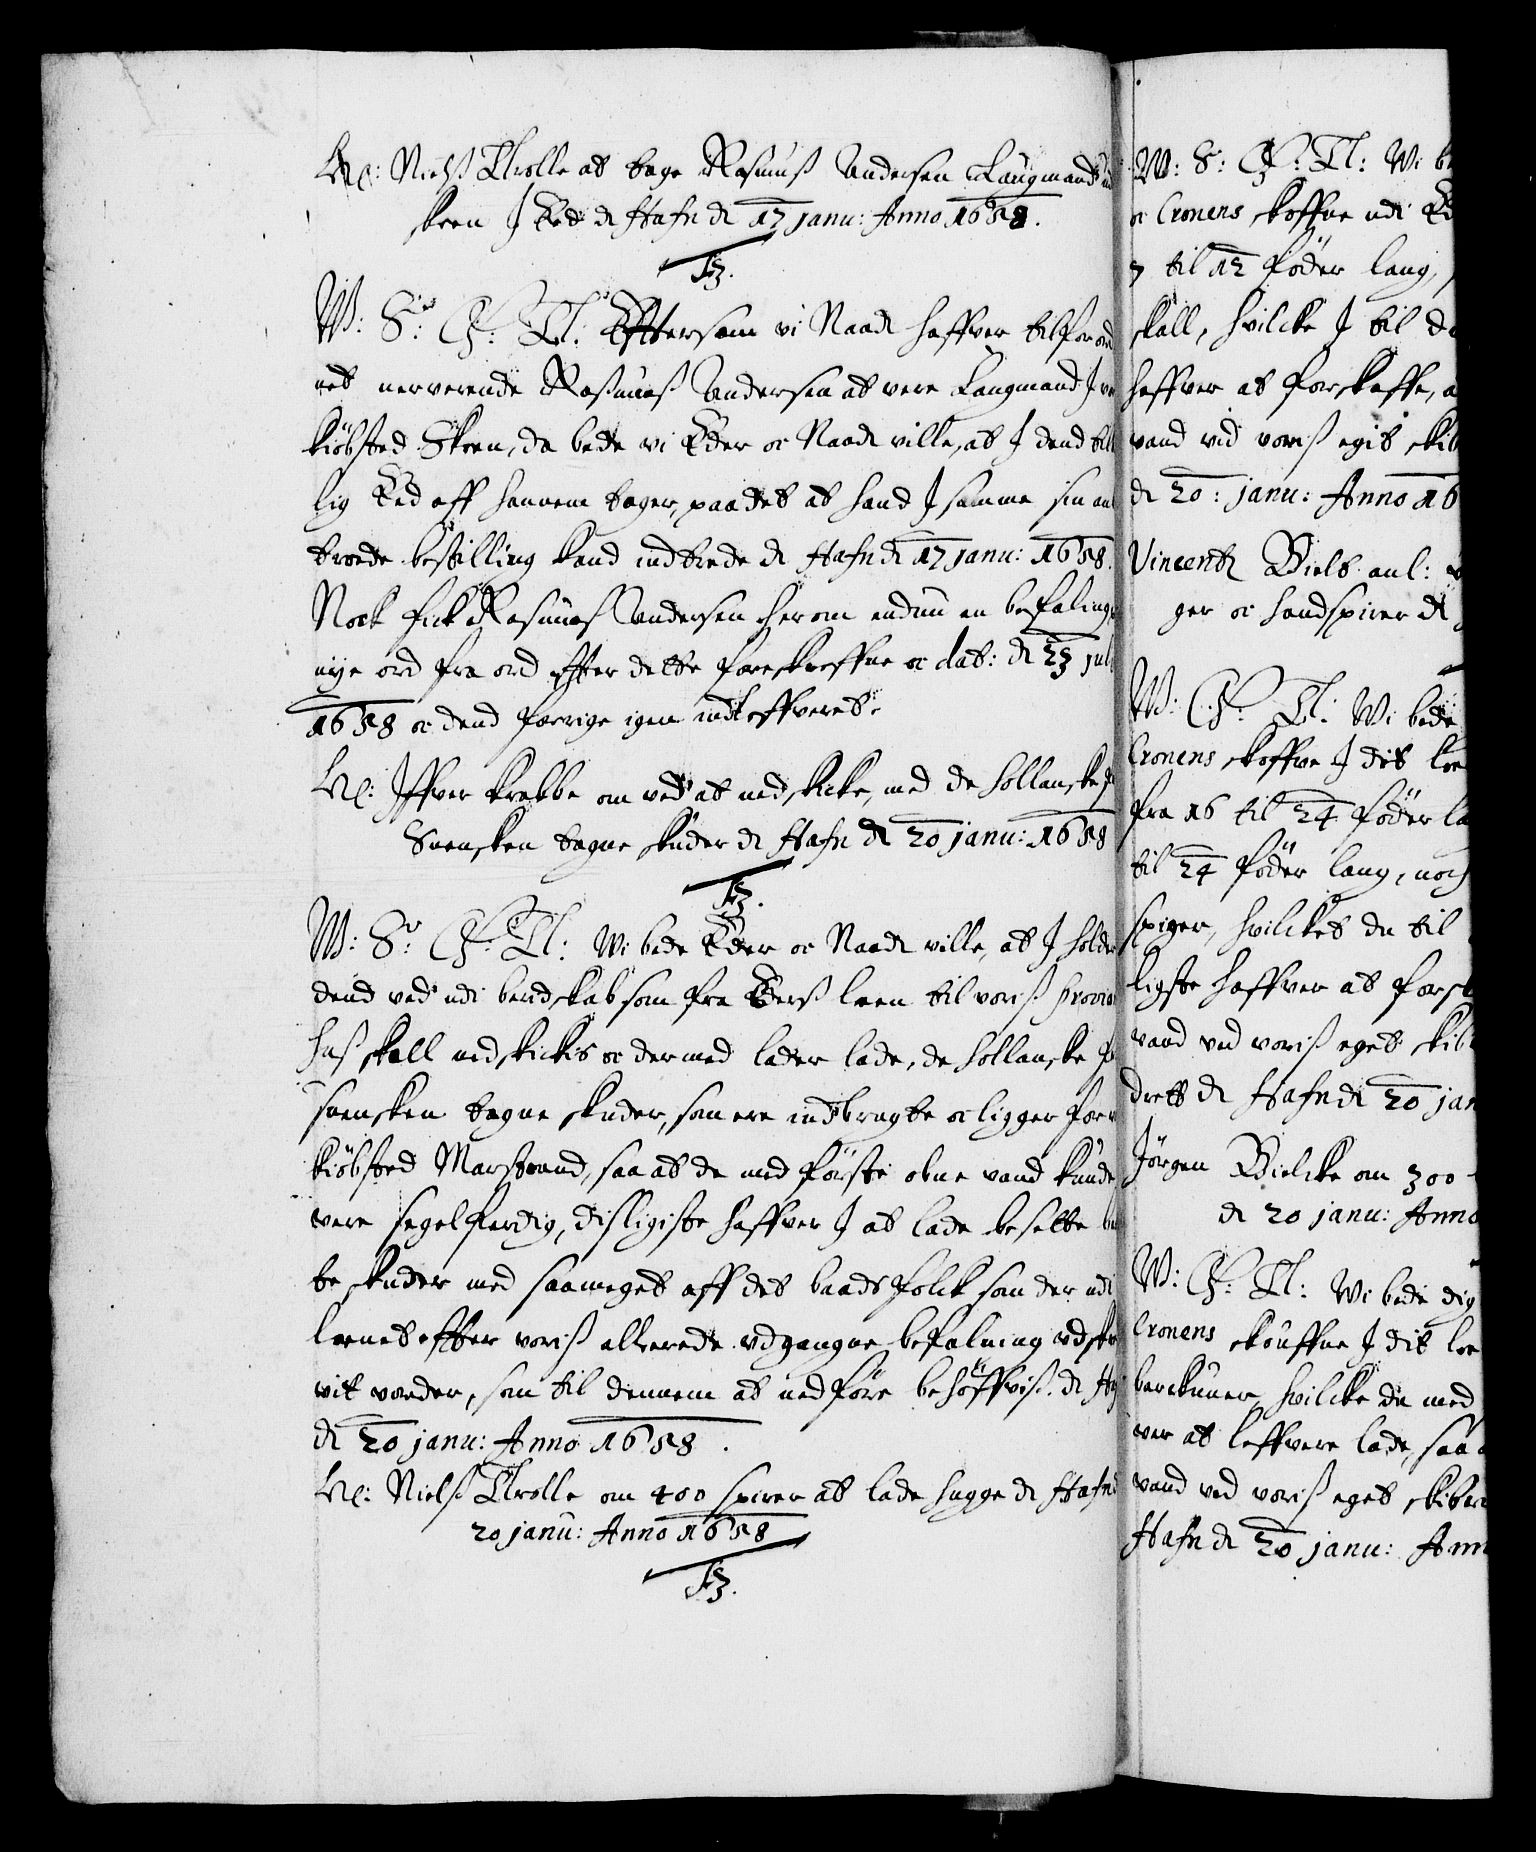 H: Nielß Trolle at tage Rasmuß Andersen Laugmand udi
Skeen J Eed d Hafn d 17 janu: Anno 1658.
F3.
W: S: G: T: Efftersom vi Naadt haffver tilforord
net nerverende Rasmuß Andersen at vere Laugmand J vor
kiöbsted Skeen, da bede vi Eder oc Naadt ville, at J dend til
lig Eed aff hannem tager, paa det at hand J samme sin an
troede bestilling kand indtrede d Hafn d 17 janu: 1658.
Nock fick Rasmus Andersen herom endnu en befaling
nye ord fra ord effter dette foreskreffne oc dat: d 23 jul
1658 oc dend forrige igen indleffveret.
H: Iffver Krabbe om ved at nedskicke, med de hollanske
Svensken tagne skuder d Hafn d 20 janu: 1658
F3.
W: S: G: T: Wi bede Eder oc Naadt ville, at J holder
dend ved udi beredskab som fra Eders leen til voriß Provian
huß skall nedskickis oc dermed lader lade, de hollanske
svensken tagne skuder, som ere indbragte oc ligger for
kiöbsted Marstrand, saa at de med förste obne vand kunde
vere segelferdig, disligiste haffver J at lade besette
te skuder med saameget aff det baadsfolck som der udi
leenet effter voriß allerede udgangne befalning udskre
vit vorder, som til dennem at nedföre behöffviß. d Haf
d 20 janu: Anno 1658.
H: Nielß Trolle om 400 spirer at lade hugge d Hafn
20 janu: Anno 1658
F3.
W: S: G: T: Wi be
oc Cronens skoffve udi Ed
7 til 12 föder lang,
skall, hvilcke J til de
haffver at forskaffe,
vand ved voriß egit skib
d 20: janu: Anno 16
Vincentz Bielt anl:
ger oc haandspirer d
W: G: T: Wi bede
Cronens skoffve J dit lee
fra 16 til 24 föder la
til 24 föder lang, noch
spiger, hvilcket du til
ligste haffver at forsk
vand ved voriß eget skib
drett d Hafn d 20 jan
Jörgen Bielcke om 300
d 20 janu: Anno
W: G: T: Wi bede dig
Cronens skouffve J dit lee
barckuner, hvilcke du med
ver at leffvere lade, saa
vand ved voriß eget skib
Hafn d 20 janu: Ann